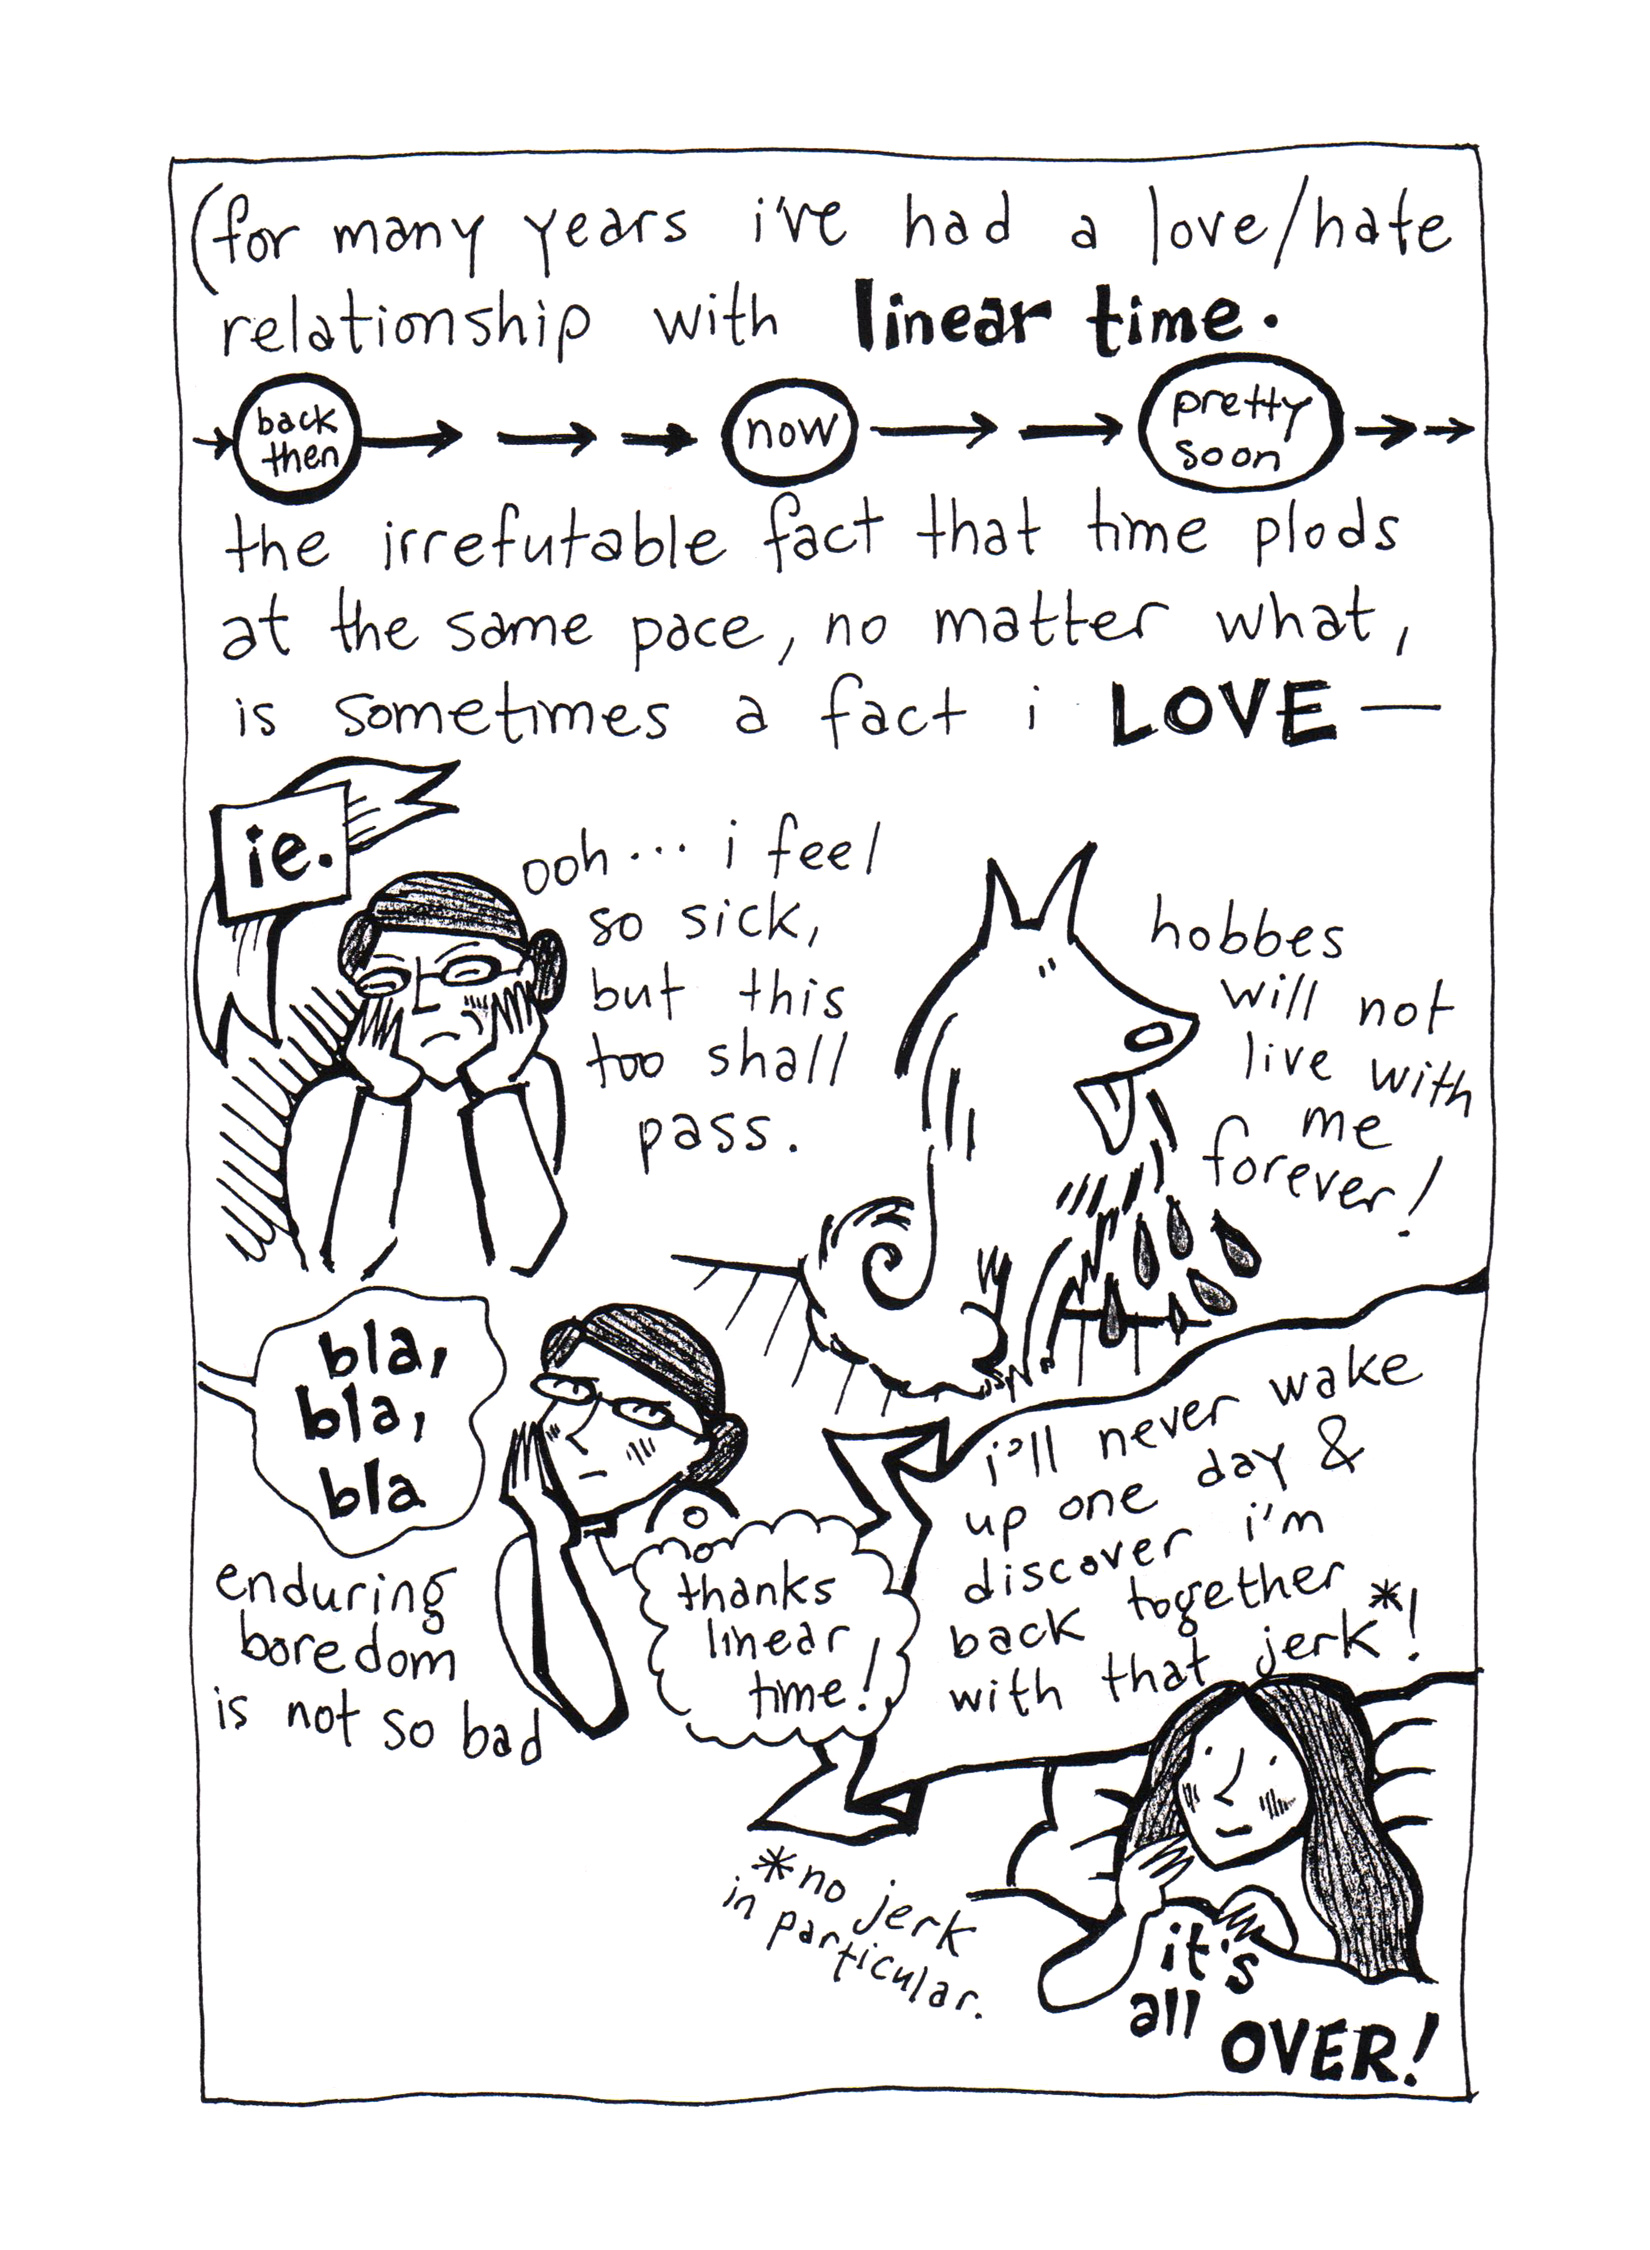 (for many years i've had a love/hate
relationship with linear time.
back
then
now
pretty
soon
the irrefutable fact that time plods
at the same pace, no matter what,
is sometimes a fact i LOVE —
ie.
ooh... i feel
so sick,
but this
too shall
pass.
hobbes
will not
live with
me
forever!
bla,
bla,
bla
enduring
boredom
is not so bad
thanks
linear
time!
i'll never wake
up one day &
discover i'm
back together
with that jerk*!
*no jerk
in particular.
it's
all
OVER!